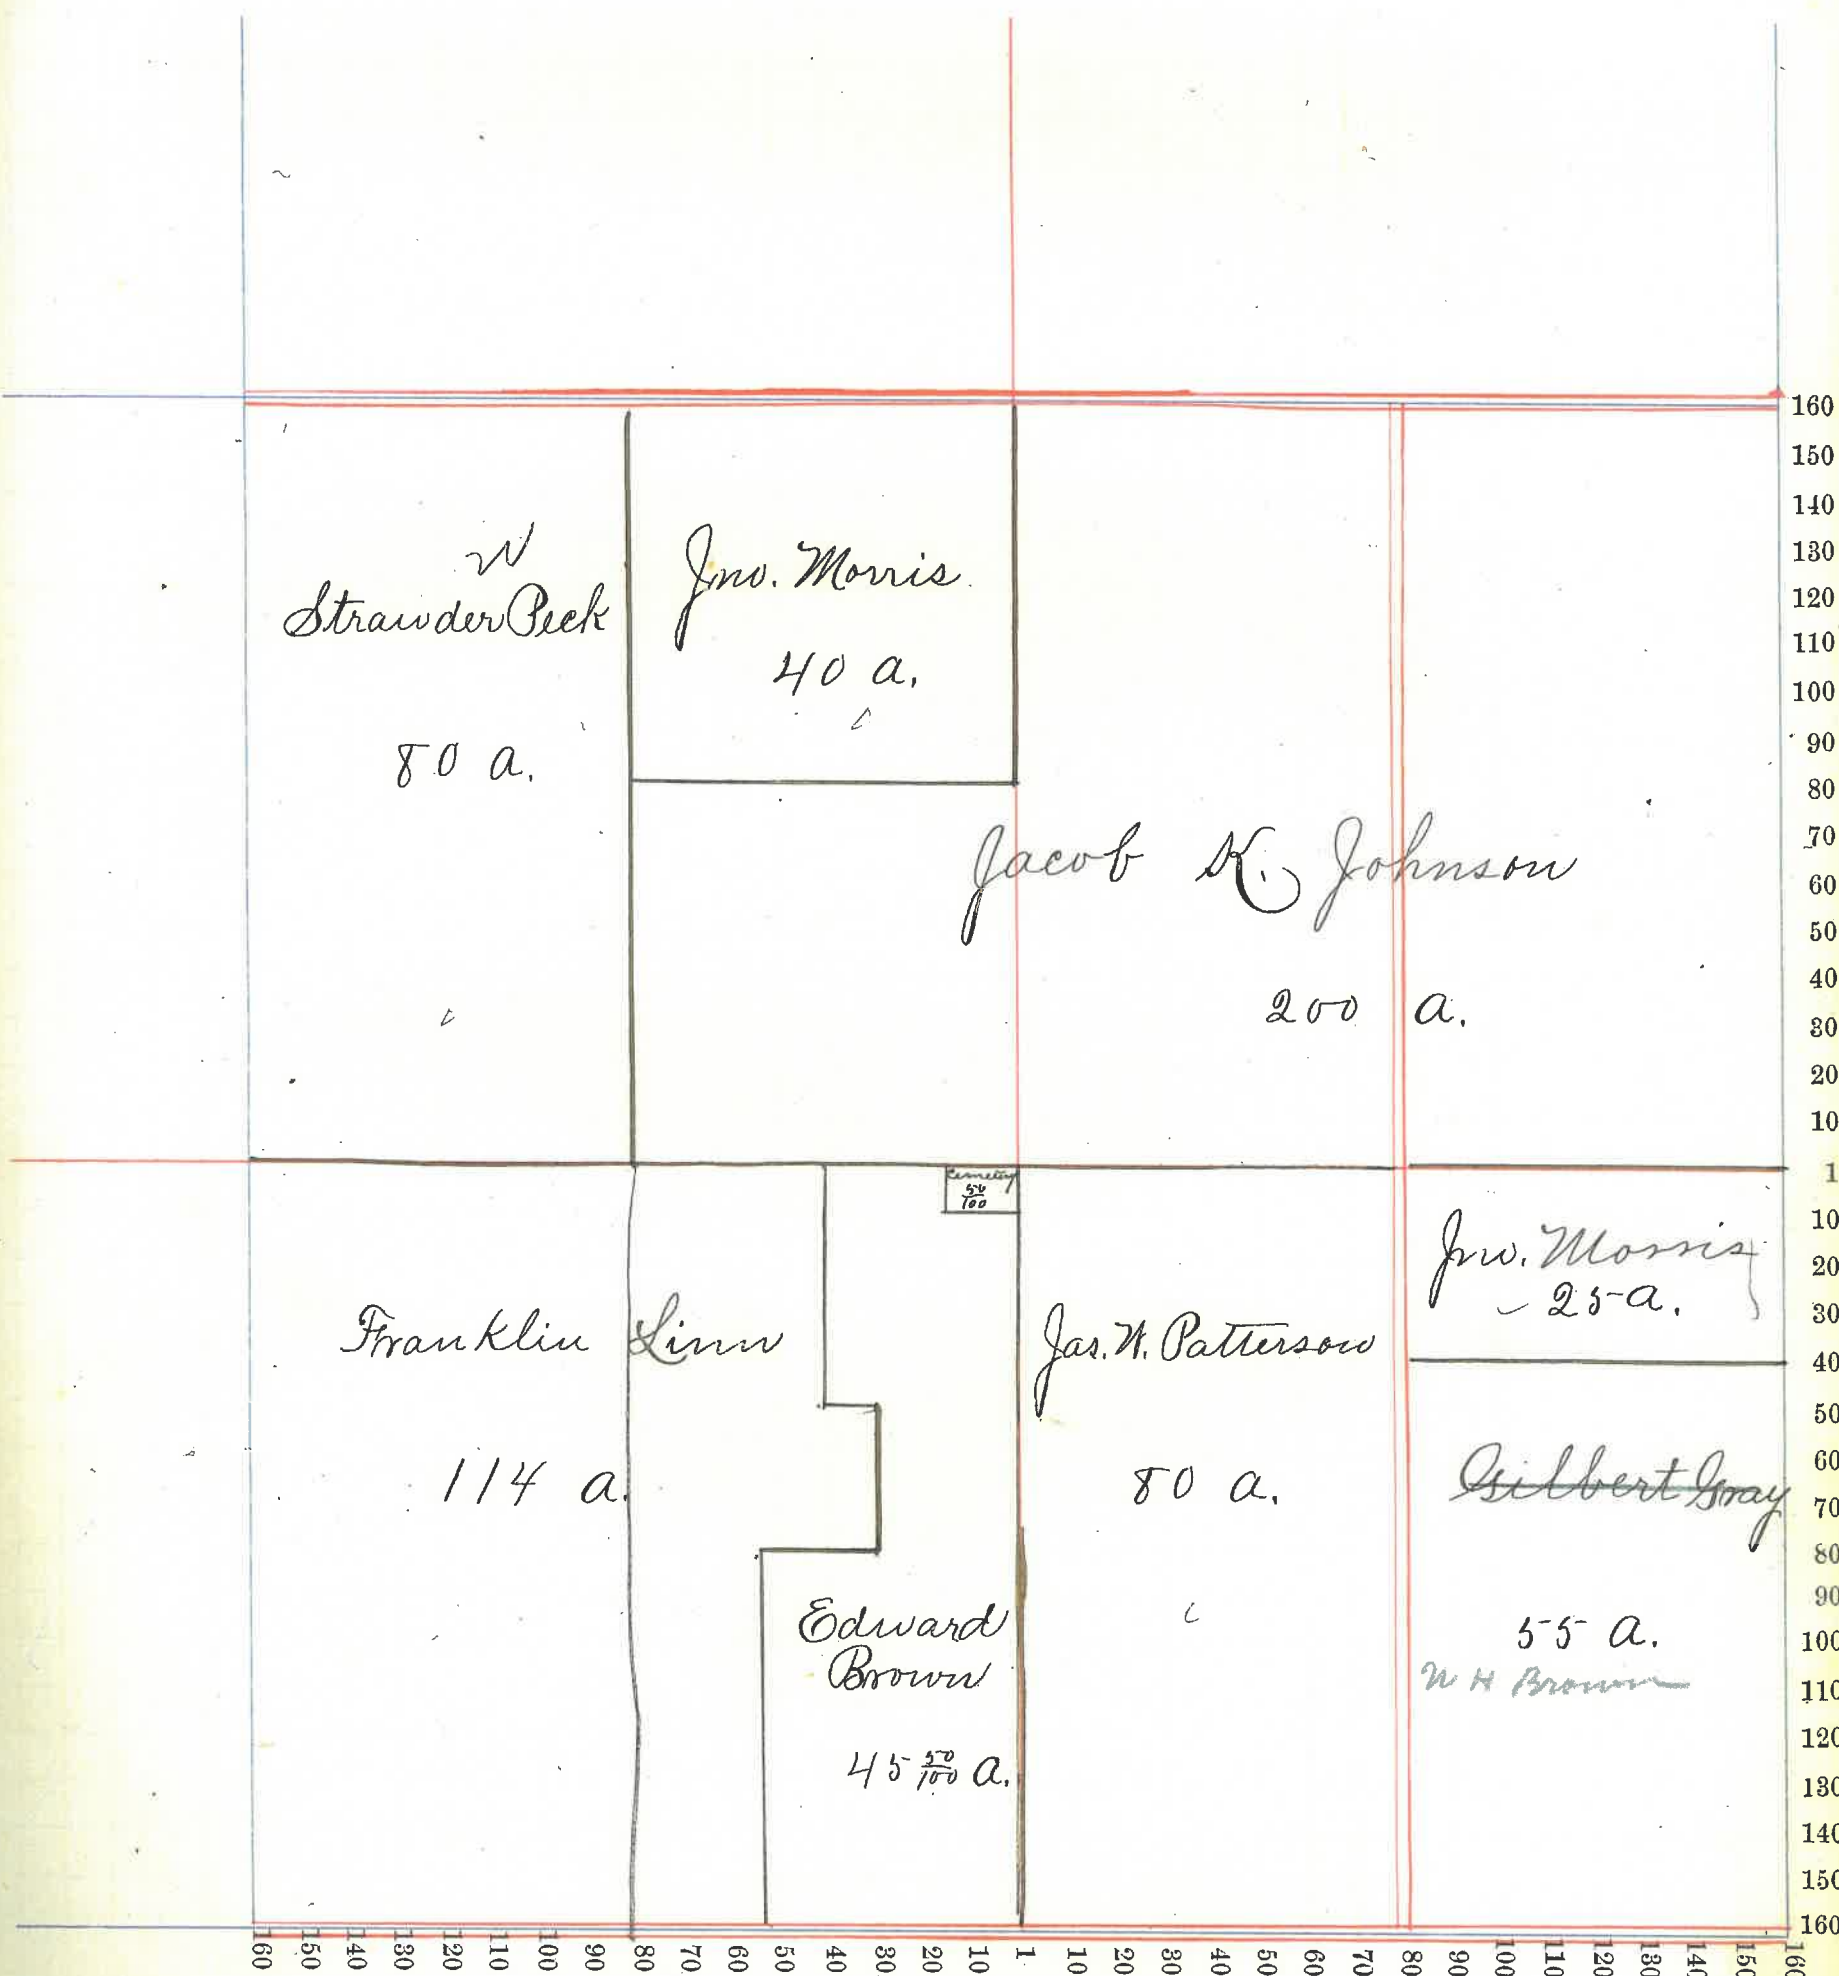 W
Strawder Peck
80 a.
Jno. Morris
40 a.
Jacob K. Johnson
200 a.
Cemetery
50/100
Franklin Linn
114 a.
Edward
Brown
45 50/100 a.
Jas. W. Patterson
80 a.
Jno. Morris
25 a.
Gilbert Gray
55 a.
W H Brown
160
150
140
130
120
110
100
90
80
70
60
50
40
30
20
10
1
10
20
30
40
50
60
70
80
90
100
110
120
130
140
150
160
160 150 140 130 120 110 100 90 80 70 60 50 40 30 20 10 1 10 20 30 40 50 60 70 80 90 100 110 120 130 140 150 160